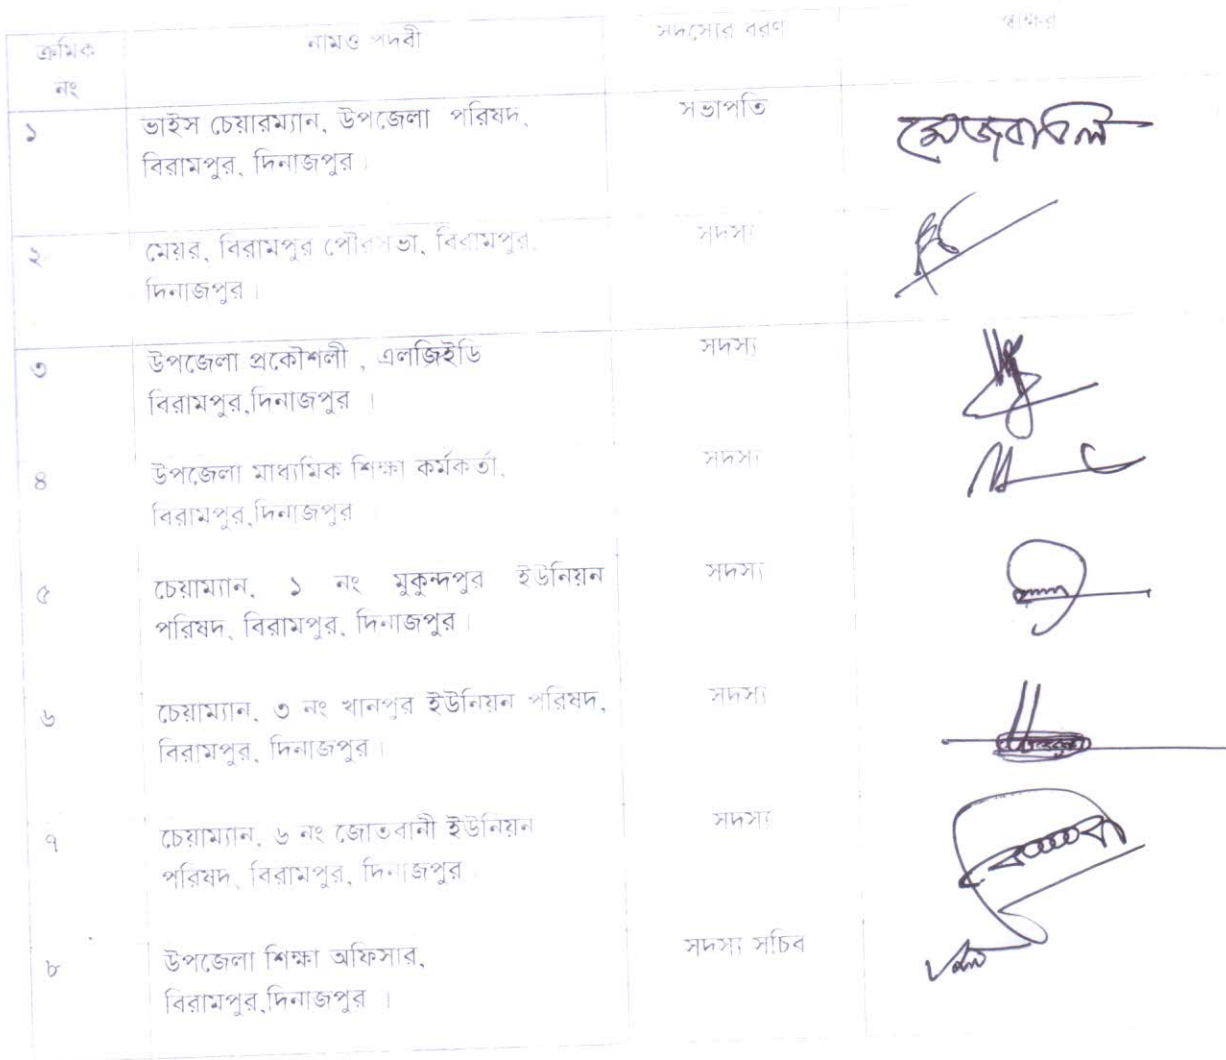 ক্রমিক নং
নামও পদবী
সদস্যের বরণ
স্বাক্ষর
১
ভাইস চেয়ারম্যান, উপজেলা পরিষদ,
বিরামপুর, দিনাজপুর।
সভাপতি
২
মেয়র, বিরামপুর পৌরসভা, বিরামপুর,
দিনাজপুর।
সদস্য
৩
উপজেলা প্রকৌশলী , এলজিইডি
বিরামপুর,দিনাজপুর ।
সদস্য
৪
উপজেলা মাধ্যমিক শিক্ষা কর্মকর্তা,
বিরামপুর,দিনাজপুর
সদস্য
৫
চেয়াম্যান, ১ নং মুকুন্দপুর ইউনিয়ন
পরিষদ, বিরামপুর, দিনাজপুর।
সদস্য
৬
চেয়াম্যান, ৩ নং খানপুর ইউনিয়ন পরিষদ,
বিরামপুর, দিনাজপুর।
সদস্য
৭
চেয়াম্যান, ৬ নং জোতবানী ইউনিয়ন
পরিষদ, বিরামপুর, দিনাজপুর
সদস্য
৮
উপজেলা শিক্ষা অফিসার,
বিরামপুর,দিনাজপুর ।
সদস্য সচিব